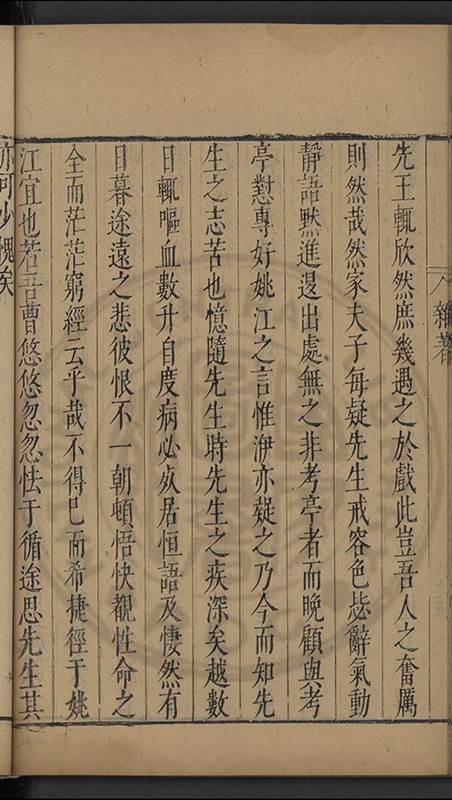 雜著
先王輒欣然庶幾遇之於戲此豈吾人之奮厲
則然哉然家夫子每疑先生戒容色毖辭氣動
靜語黙進退出處無之非考亭者而晚顧與考
亭懟專好姚江之言惟洢亦疑之乃今而知先
生之志苦也憶隨先生時先生之疾深矣越數
日輒嘔血數升自度病必死居恒語及悽然有
日暮途遠之悲彼恨不一朝頓悟快覩性命之
全而茫茫窮經云乎哉不得已而希捷徑于姚
江宜也若吾曹悠悠忽忽怯于循途思先生其
亦可少愧矣